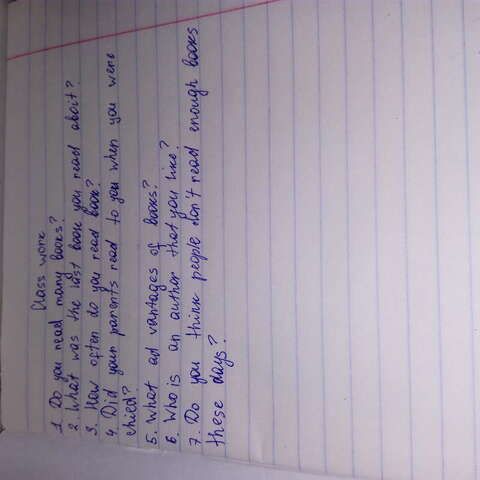 Class work
1. Do you read many books?
2. What was the last book you read about?
3. How often do you read book?
4. Did your parents read to you when you were
child?
5. What ad vantages of books?
6. Who is an author that you like?
7. Do you think people don't read enough books
these days?